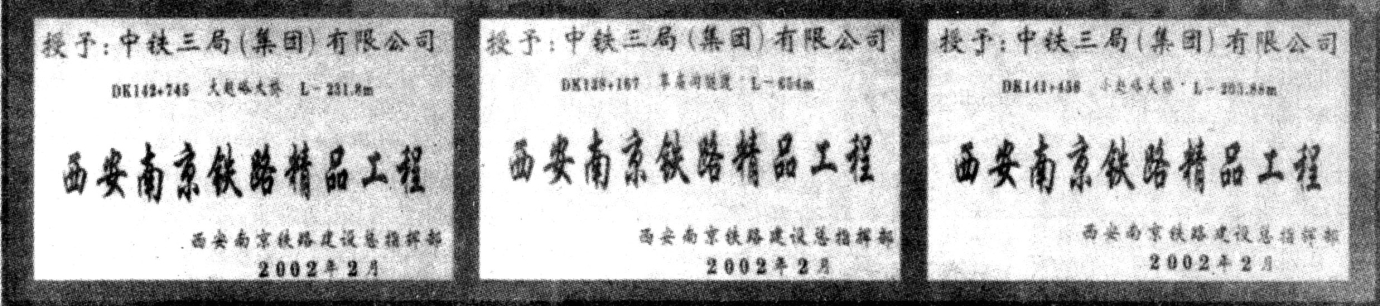 授予：中铁三局(集团)有限公司
DK142+745 大赵峪大桥 L-231.8m
西安南京铁路精品工程
西安南京铁路建设总指挥部
2002年2月
授予：中铁三局(集团)有限公司
DK138+167 L-654m
西安南京铁路精品工程
西安南京铁路建设总指挥部
2002年2月
授予：中铁三局(集团)有限公司
DK141+456 小赵峪大桥 L-265.88m
西安南京铁路精品工程
西安南京铁路建设总指挥部
2002年2月